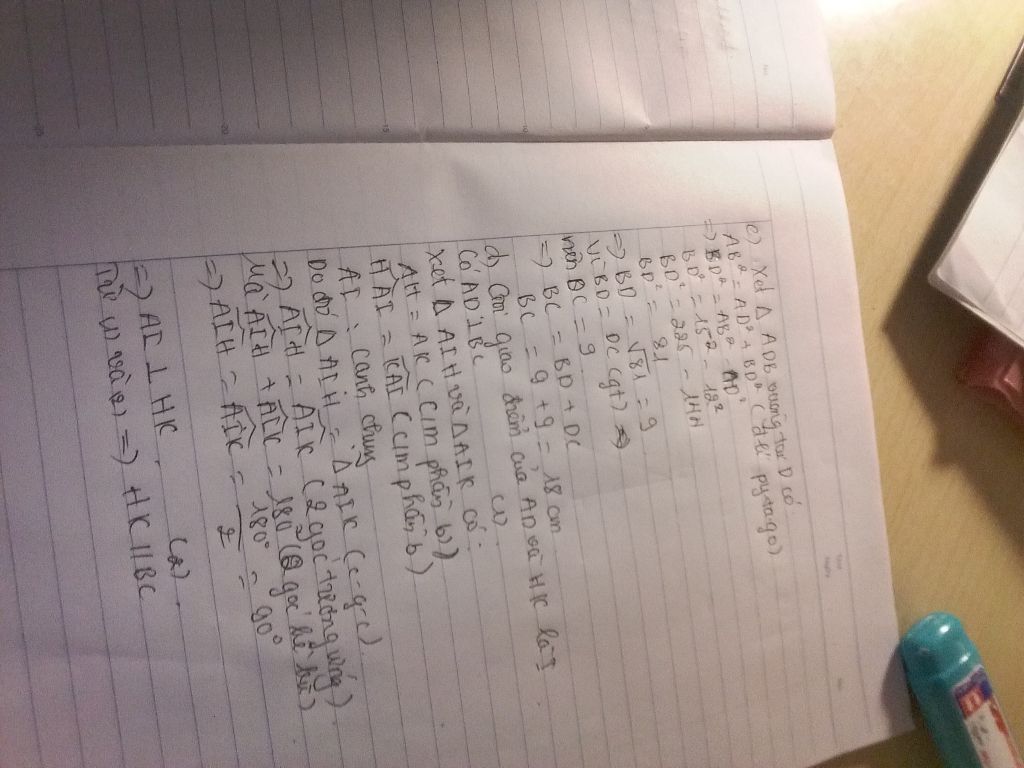 c) Xét Δ ADB vuông tại D có
AB² = AD² + BD² (ĐL pytago)
=) BD² = AB² AD²
BD² = 15² - 12²
BD² = 225 - 144
BD² = 81
=) BD = √81 = 9
Vì BD = DC (gt)
nên DC = 9
=) BC = BD + DC
BC = 9 + 9 = 18 cm
d) Gọi giao điểm của AD và HK là I
Có AD ⊥ BC (1)
Xét Δ AIH và Δ AIK có:
AH = AK (cm phần b))
HAI = KAI (cm phần b)
AI: cạnh chung
Do đó Δ AIH = Δ AIK (c-g-c)
=) AIH = AIK (2 góc tương ứng)
Mà AIH + AIK = 180° (2 góc kề bù)
=) AIH = AIK = 180°/2 = 90°
=) AI ⊥ HK. (2)
Từ (1) và (2) =) HK // BC